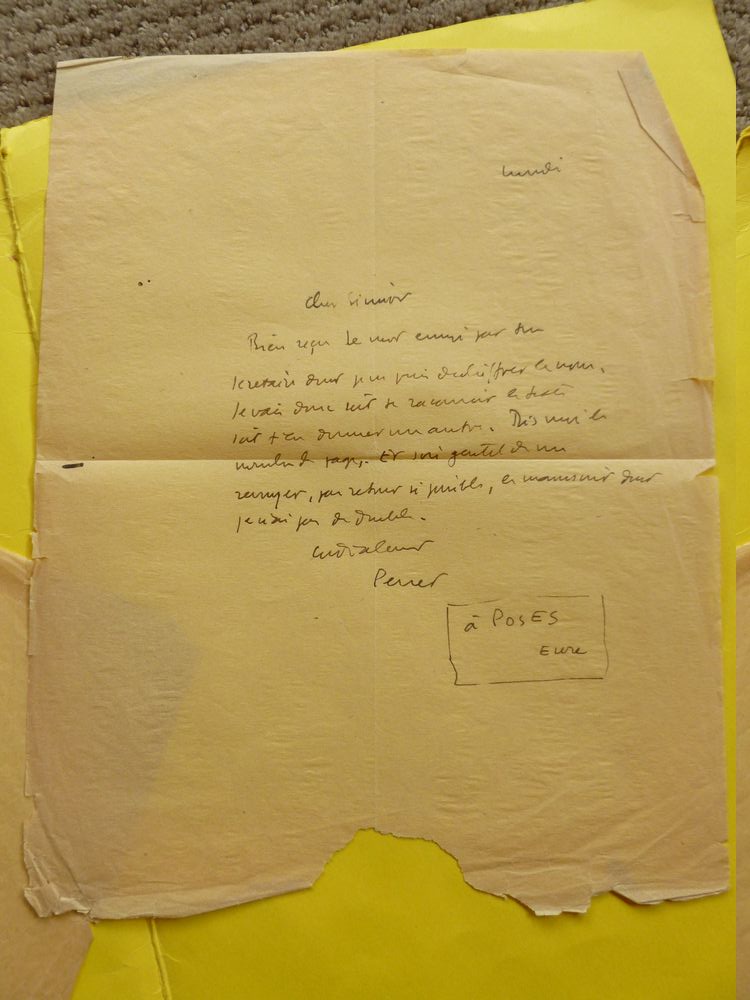 lundi
Cher
Bien reçu le mot envoyé par ton
secrétaire dont je n'ai pu déchiffrer le nom.
Je vais donc soit te raccourcir le texte
soit t'en donner un autre. Dis moi le
nombre de pages. Et sois gentil de me
renvoyer, par retour si possible, le manuscrit dont
je n'ai pas de double.
Cordialement
Perret
à POSES
Eure